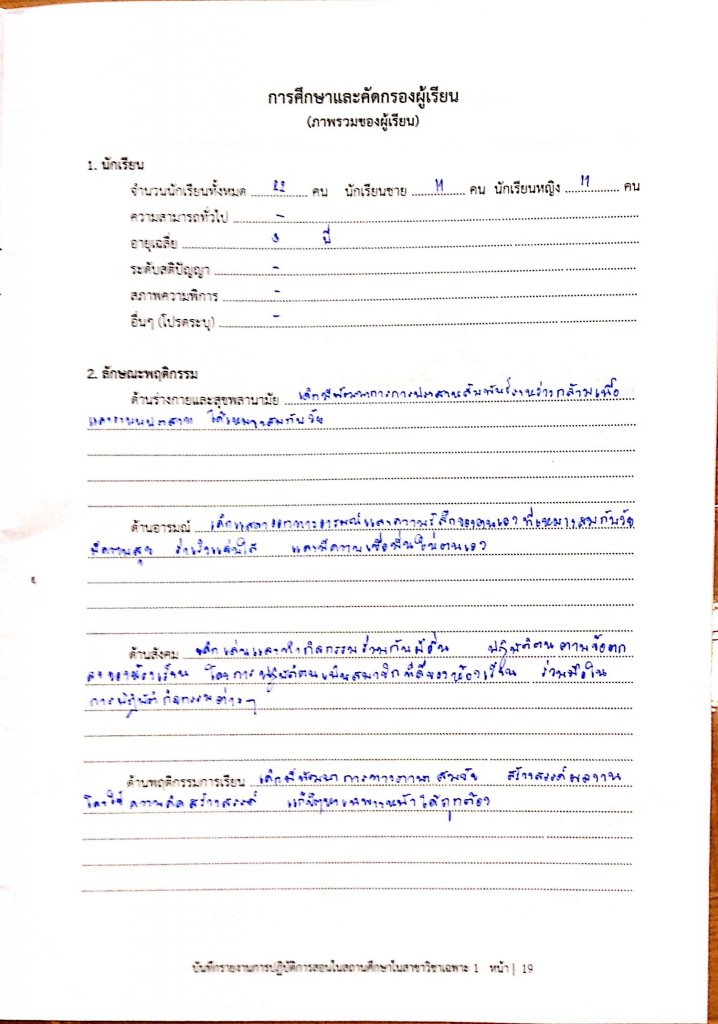 การศึกษาและคัดกรองผู้เรียน
(ภาพรวมของผู้เรียน)
1. นักเรียน
จำนวนนักเรียนทั้งหมด 22 คน นักเรียนชาย 11 คน นักเรียนหญิง 11 คน
ความสามารถทั่วไป -
อายุเฉลี่ย 3 ปี
ระดับสติปัญญา -
สภาพความพิการ -
อื่นๆ (โปรดระบุ) -
2. ลักษณะพฤติกรรม
ด้านร่างกายและสุขพลานามัย เด็กมีพัฒนาการการประสานสัมพันธ์ระหว่างกล้ามเนื้อ
และระบบประสาท ได้เหมาะสมกับวัย
ด้านอารมณ์ เด็กแสดงออกทางอารมณ์และความรู้สึกของตนเอง ที่เหมาะสมกับวัย
มีความสุข ร่าเริงแจ่มใส และมีความเชื่อมั่นในตนเอง
ด้านสังคม เด็กเล่นและทำกิจกรรมร่วมกับผู้อื่น ปฏิบัติตน ตามข้อตก
ลงของห้องเรียน โดยการปฏิบัติตนเป็นสมาชิกที่ดีของห้องเรียน ร่วมมือใน
การปฏิบัติกิจกรรมต่างๆ
ด้านพฤติกรรมการเรียน เด็กมีพัฒนาการทางภาษา สมวัย สร้างสรรค์ผลงาน
โดยใช้ความคิดสร้างสรรค์ แก้ปัญหาเฉพาะหน้าได้ถูกต้อง
บันทึกรายงานการปฏิบัติการสอนในสถานศึกษาในสาขาวิชาเฉพาะ 1 หน้า | 19